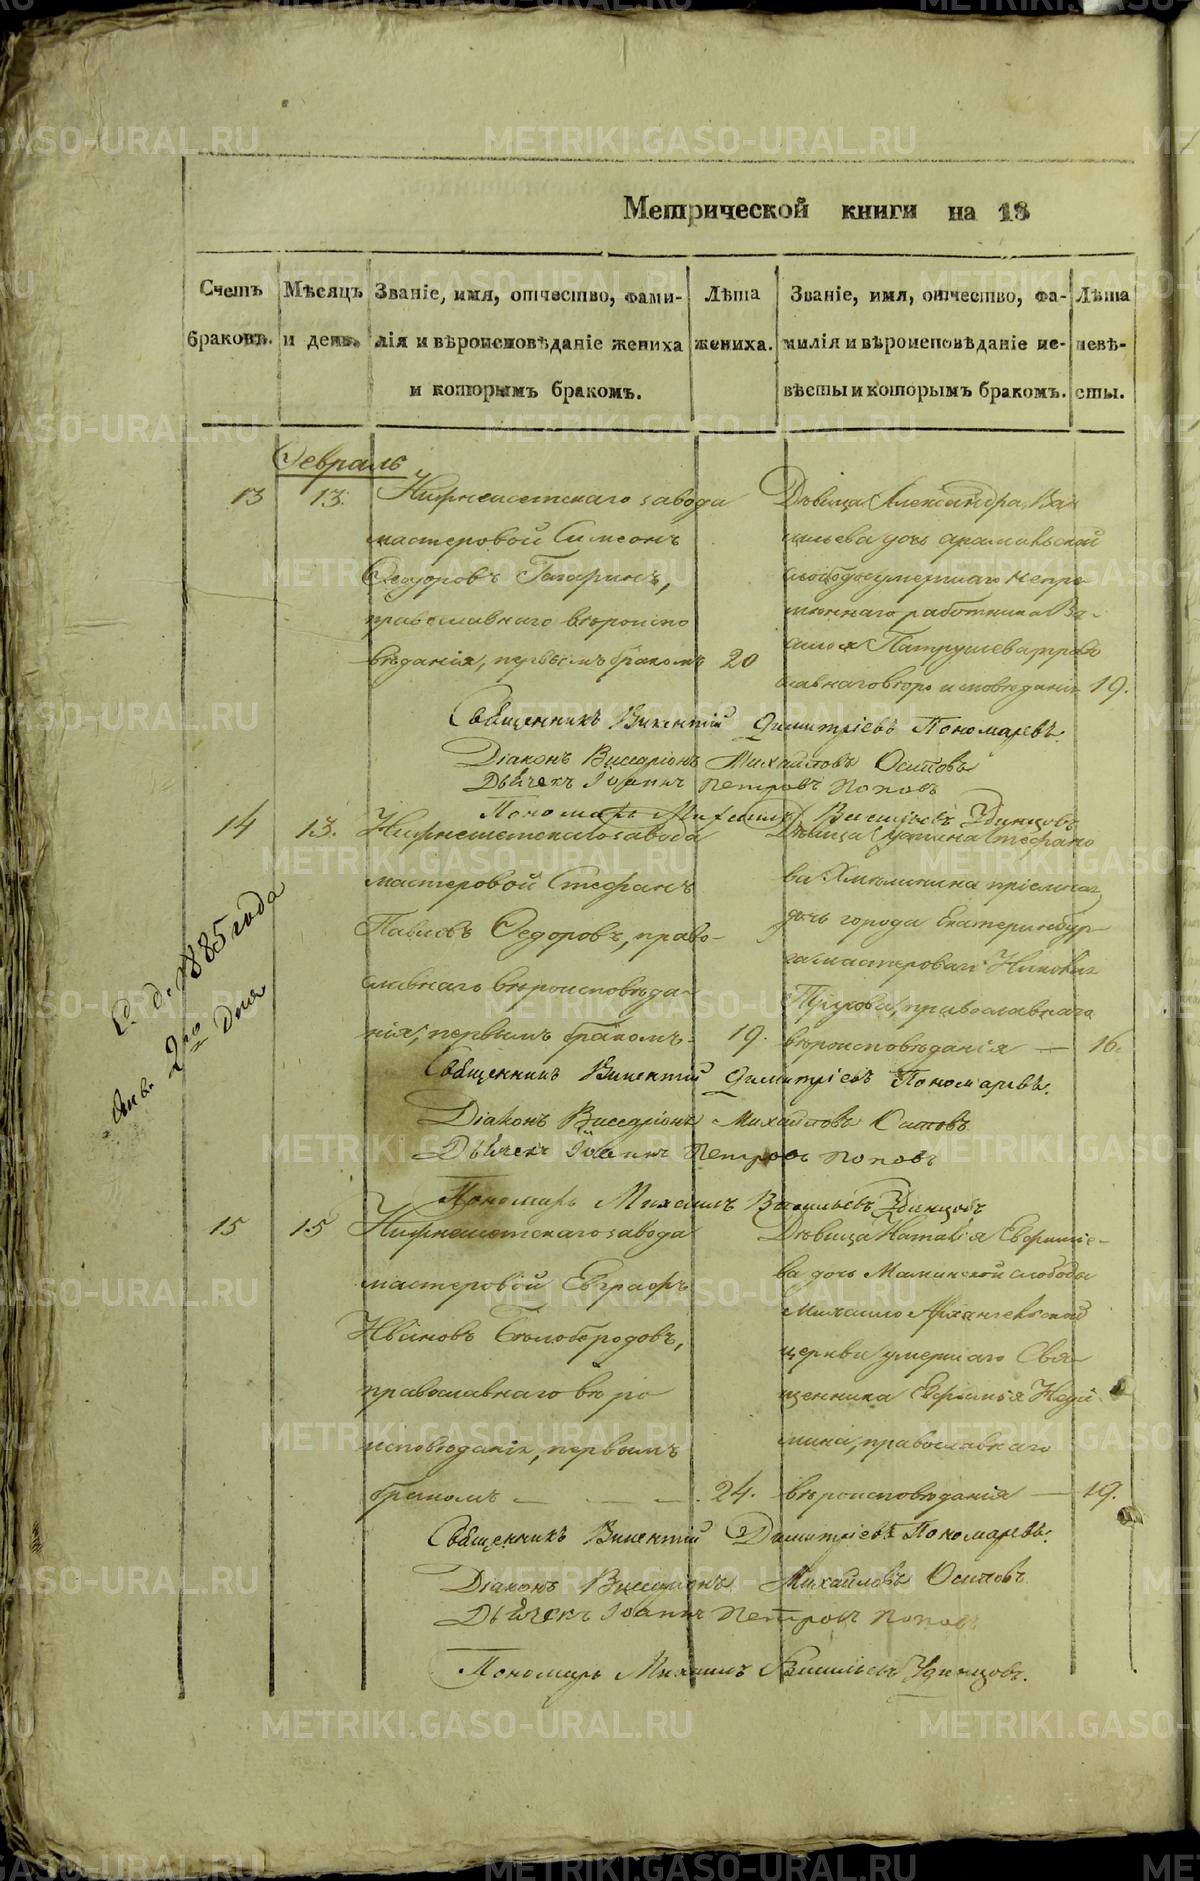 Метрической книги на 18
Счетъ
браковъ.
Мѣсяцъ
и день.
Званіе, имя, отчество, фами-
лія и вѣроисповѣданіе жениха
и которымъ бракомъ.
Лѣта
жениха.
Званіе, имя, отчество, фа-
милія и вѣроисповѣданіе не-
вѣсты и которымъ бракомъ.
Лѣта
невѣ-
сты.
Февраль
13
13.
Нижнеисетскаго завода
мастеровой Симеонъ
Ѳеодоровъ Гагаринъ,
православнаго вѣроиспо
вѣданія, первымъ бракомъ
20
Дѣвица Александра Ва
сильева дочь арамильской
слободы умершаго непре
менного работника Ва-
силья Патрушева, право
славнаго вѣроисповѣданія
19.
Священникъ Викентій Димитріевъ Пономаревъ.
Діаконъ Виссаріонъ Михайловъ Осиповъ
Дьячекъ Іоаннъ Петровъ Поповъ
Пономарь Михаилъ Васильевъ Удинцовъ
14
13.
Нижнеисетскаго завода
мастеровой Стефанъ
Павловъ Ѳедоровъ, право-
славнаго вѣроисповѣда-
нія, первымъ бракомъ.
19.
Дѣвица Стефано
ва пріемная
дочь города Екатеринбур-
га мастероваго
православнаго
вѣроисповѣданія —
16.
1885 года
2го дня
Священникъ Викентій Димитріевъ Пономаревъ.
Діаконъ Виссаріонъ Михайловъ Осиповъ
Дьячекъ Іоаннъ Петровъ Поповъ
Пономарь Михаилъ Васильевъ Удинцовъ
15
15
Нижнеисетскаго завода
мастеровой Евграфъ
Ивановъ Бѣлобородовъ,
православнаго вѣро
исповѣданія, первымъ
бракомъ — — —.
24.
Дѣвица Наталія Евфиміе-
ва дочь Маминской слободы
Михаило Архангельской
церкви умершаго Свя
щенника Евфимья
православнаго
вѣроисповѣданія —
19.
Священникъ Викентій Димитріевъ Пономаревъ.
Діаконъ Виссаріонъ Михайловъ Осиповъ
Дьячекъ Іоаннъ Петровъ Поповъ
Пономарь Михаилъ Васильевъ Удинцовъ.
METRIKI.GASO-URAL.RU